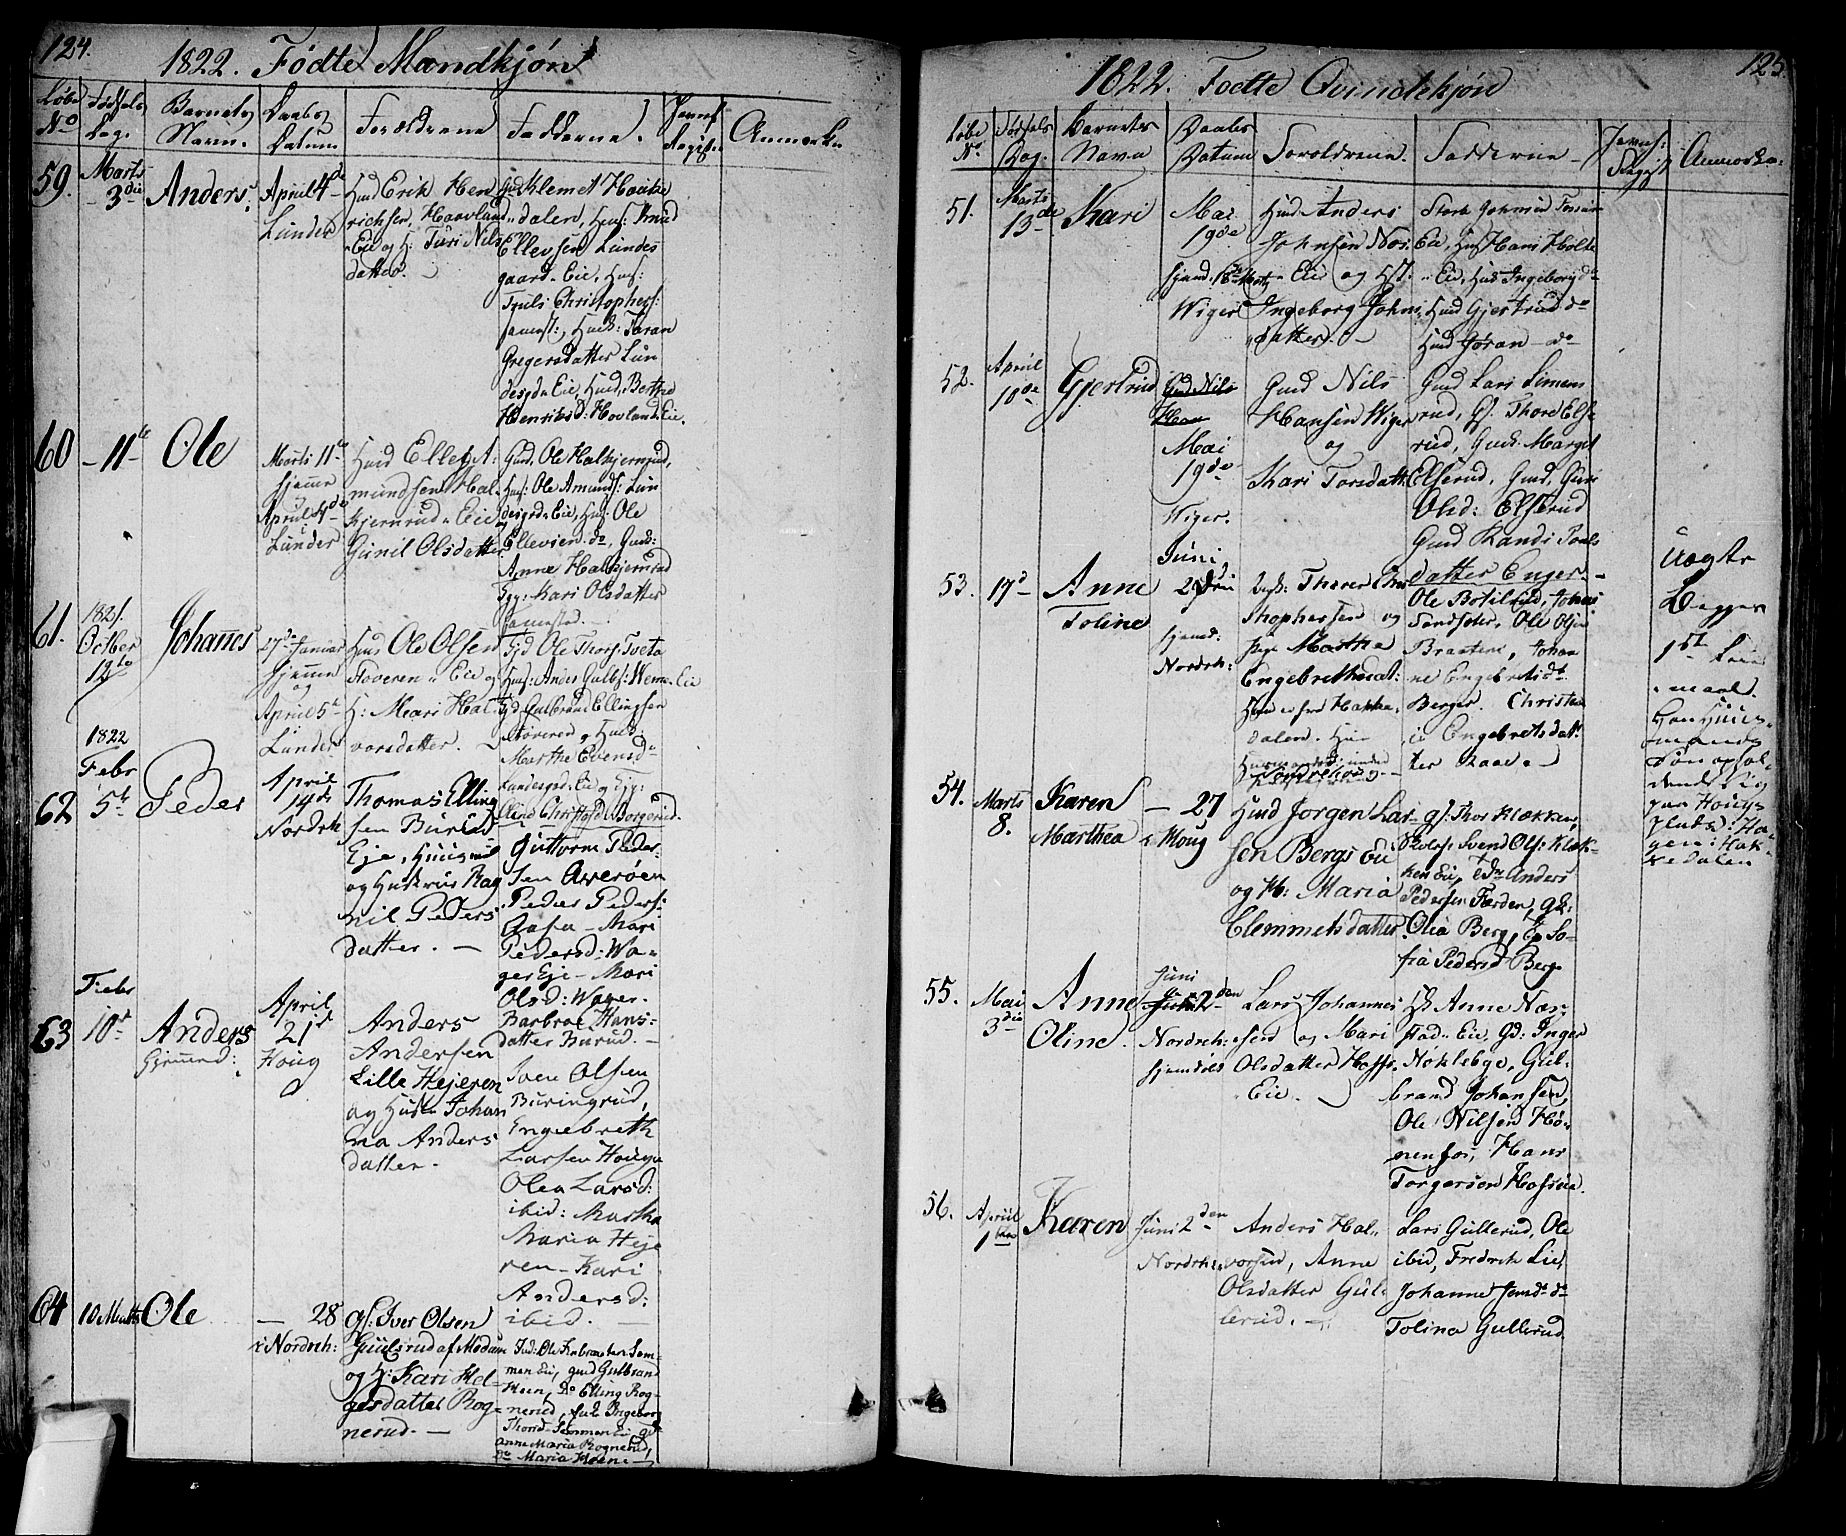 124.
1822. Fødte Mandkjøn
Løbe No
Fødsels Dag.
Barnets Navn.
Daabs Datum
Forældrene
Fadderne.
Anmerkn
59.
Marts 3die
Anders.
April 4de
Lunder
Husd Erik Hen
richsen Hovland
Eie og H: Turi Nils
datter.
Klemet Hvike
dalen, Hus: Knud
Ellevsen Lundes
gaard Eie, Hus:
Truls Christophers:
Taran
Gregersdatter Lun
desgd Eie, Husd. Berthe
Henriksd: Hovland Eie.
60
11te
Ole
Marts 11te
hjemme
og
April 4de
Lunder
Husd Ellef A:
mundsen Hal-
kjernrud Eie
Gunil Olsdatter
Gud. Ole Halkjernrud,
Hus: Ole Amunds: Lun
desgrd Eie, Hus: Ole
Ellevsen do, Gudk:
Anne Halkjernrud
Kari Olsdatter
61.
1821.
Octber
12te
Johannes
27de Januar
hjemme
og
April 5te
Lunder
Hus Ole Olsen
Støveren Eie og
H: Mari Hal-
vorsdatter.
Ole Thors: Tveta
Hus: Anders Gulbs: Weme Eie
Gulbrand Ellingsen
Støveren og Husk:
Marthe Evensd
Lundesgrd. Eie og
62
1822
Febr
5te
Peder
April
14de
Nordreh
Thomas Elling
sen Burud
Eje, Huusmd
og Hustrue Rag
nil Peders
datter.
Guttorm Peder-
sen Averøen
Peder Peders:
Aasa - Mari
Pedersd: Wa-
ger Eje - Mari
Olsd: Wager.
Barbroe Hans-
datter Burud.
63
Febr
10de
Anders
April
21de
Houg
Anders
Andersen
Lille Hejeren
og Hustr Johan
na Anders
datter.
Sven Olsen
Buringrud,
Engebreth
Larsen Houg
Olea Larsd:
ibid: Martha
Maria Heje
ren - Kari
Andersd:
ibid.
64
10 Marts
Ole
- 28
i Nordreh:
gs: Iver Olsen
Guulsrud af Modum
og H: Kari Hel-
gesdatter Rog-
nerud.
gud Gulbrand
Heen, Do Elling Rog-
nerud, Ingeborg
Anne Maria Rognerud,
do Maria Heen
125.
1822. Fødte Qvindekjøn
Løbe No.
Fødsels Dag.
Barnets Navn
Daabs Datum
Forældrene.
Fadderne
Anmerkn:
51.
Marts
13de
Kari
Mai
19de
hjemd. 16de Marts
Wiger
Husd: Anders
Johnsen Nor.
Eie og Hst:
Ingeborg Johns
datter.
Eie, Hus Hans Holte
Eie, Husk Ingeborg do
Husk Gjertrud do
Husk Jøran do
52.
April
10de
Gjertrud
Gud Nils
Han
Mai
19de
Wiger.
Gud Nils
Hansen Wiger
og
Kari Torsdatt:
Gud Lars Simens
rud, Gs. Thore Else
rud, Gudk. Margit
Elserud, Gud. Guri
Olsd: Elserud
Gud Randi Pouls
datter Enger
53.
17de
Anne
Toline
Juni
2den
hjemd:
Nordreh:
Thorer Chri
stophersen og
Pige Marthe
Engebrethsdat:
Hun er fra Hakke-
dalen. Han
Ole Botilrud, Johan
Sandseter, Ole Olsen
Braaten, Johan
ne Engebretsdt
Berger. Christi
ne Engebretsdat
ter Raae.
Uægte
Begges
1ste Leier
maal.
Han Huus-
mands
Søn ophol
dende sig
paa Houg
plads: Ha-
gen: Hak-
kedalen
54.
Marts
8.
Karen
Marthea
- 27
i Houg
Husd Jørgen Lar
sen Bergs Eie
og H: Maria
Clemmetsdatter
gs: Thor Klækken,
Svend Ols: Klæk-
ken Eie, Do Anders
Pedersen Færden, gk:
Olia Berg, Ep So-
fia Pedersd Berg
55.
Mai
3die
Anne
Oline.
Juni
2den
Nordreh:
hjemdøbt
Lars Johannes
sen og Mari
Olsdatter Hofs
Eie.
Hk Anne Nær-
stad Eie, Gd: Inger
Nøklebye, Gul-
brand Johansen,
Ole Nilsen Høn-
nenfos, Hans
Torgersen Hofseie.
56.
April
1ste
Karen
Juni 2den
Nordreh:
Anders Hal-
vorsen, Anne
Olsdatter Gul-
lerud.
Lars Gullerud, Ole
ibid, Fredrik Lie,
Johanne do
Tolina Gullerud